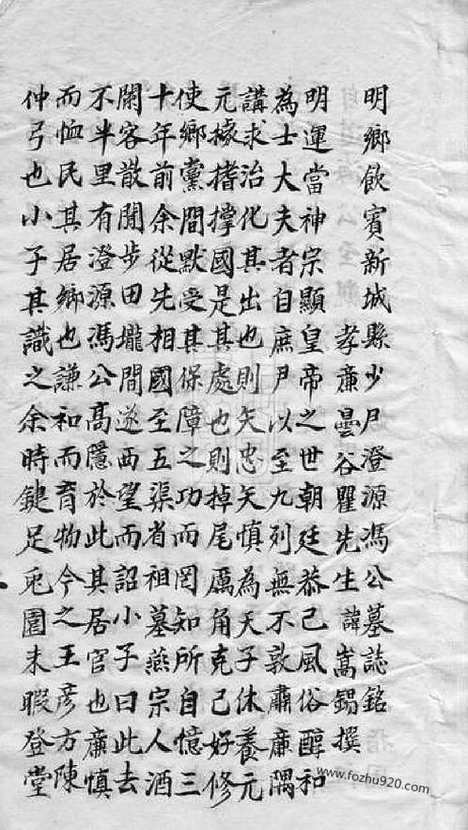 明鄉飲賓新城縣少尹澄源馮公墓誌銘
孝廉曇谷瞿先生諱嵩錫撰
明運當神宗顯皇帝之世朝廷恭己風俗醇和
為士大夫者自庶尹以至九列無不敦肅廉隅
講求治化其出也則矢忠矢慎為天子休養元
元據撐國是其處也則掉尾厲角克己好修
使鄉黨間默受其保障之功而罔知所自憶三
十年前余從先相國至五渠省祖墓燕宗人酒
闌客散閒步田壠間遂西望而詔小子曰此去
不半里有澄源馮公高隱於此其居官也廉慎
而恤民其居鄉也謙和而育物今之王彥方陳
仲弓也小子其識之余時鍵足兎園未暇登堂
www.fozhu920.com